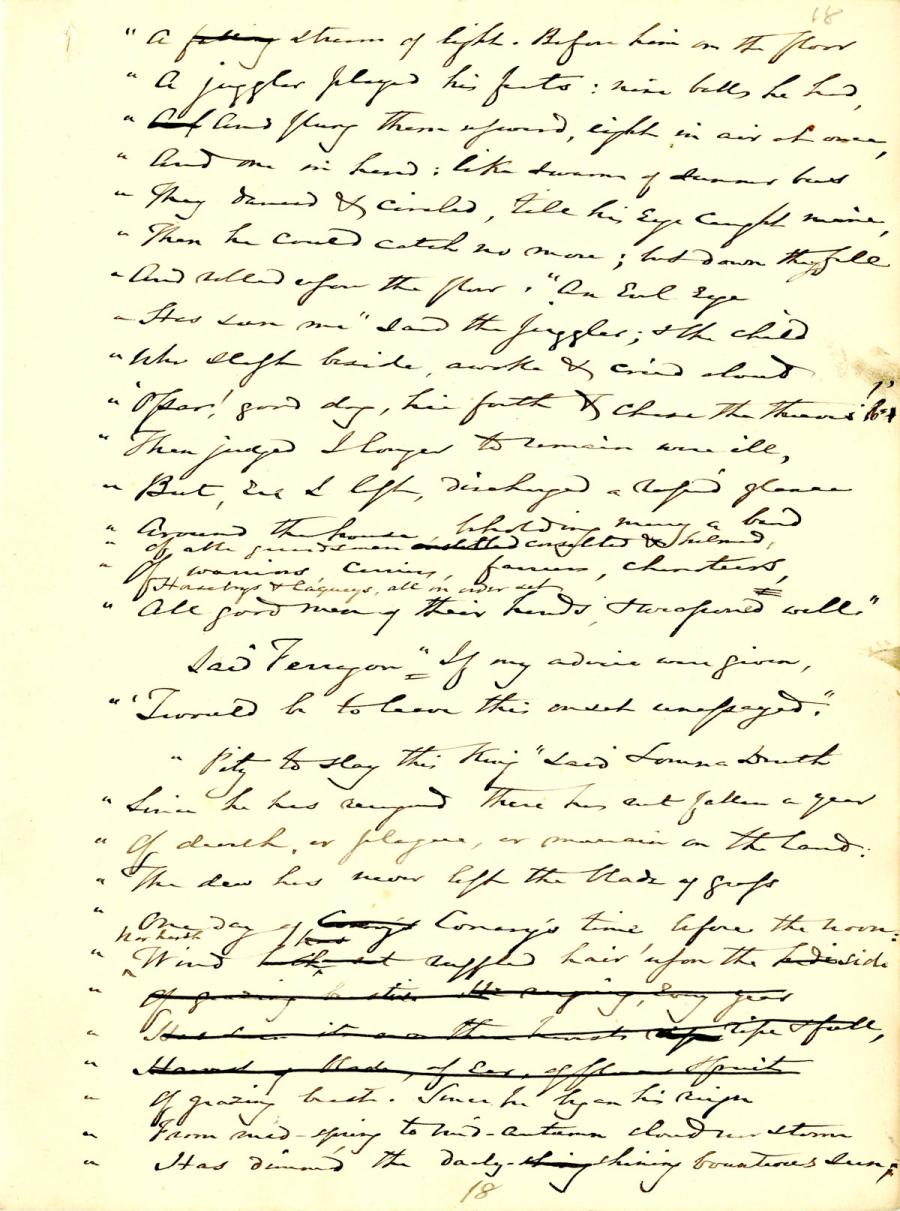 18
" A ~~falling~~ stream of light. Before him on the floor
" A juggler played his feats : nine balls he had,
" And flung them upward, eight in air at once,
" And one in hand : like swarm of summer bees
" They danced & circled, till his Eye caught mine,
" Then he could catch no more ; but down they fell
" And rolled upon the floor. "An Evil Eye
" Has seen me" said the juggler; & the child
" Who slept beside, awoke & cried aloud
" 'Ossar! good dog, hie forth & chase the thieves!'
" Then judged I longer to remain were ill,
" But, Ere I left, discharged a rapid glance
" Around the house, beholding many a band
" Of able guardsmen corseleted & helmed,
" Of warriors, carriers, farriers, charioteers,
Horseboys & laqueys, all in order set
" All good men of their hands, & weaponed well."
Said Ferragon "If my advice were given,
" 'Twould be to leave this onset unessayed."
" Pity to slay this King" said Lomna Druth
" Since he has reigned there has not fallen a year
" Of dearth, or plague, or murrain on the land:
" The dew has never left the blade of grass
" One day of Conary's time before the noon:
Nor harsh
" Wind ruffled hair upon the side
" ~~Of grazing beast~~
" ~~ripe & full,~~
" ~~Harvest of blade, of Ear, of flower & fruit~~
" Of grazing beast. Since he began his reign
" From mid-spring to mid-autumn cloud nor storm
" Has dimm'd the daily-shining bounteous sun;
18